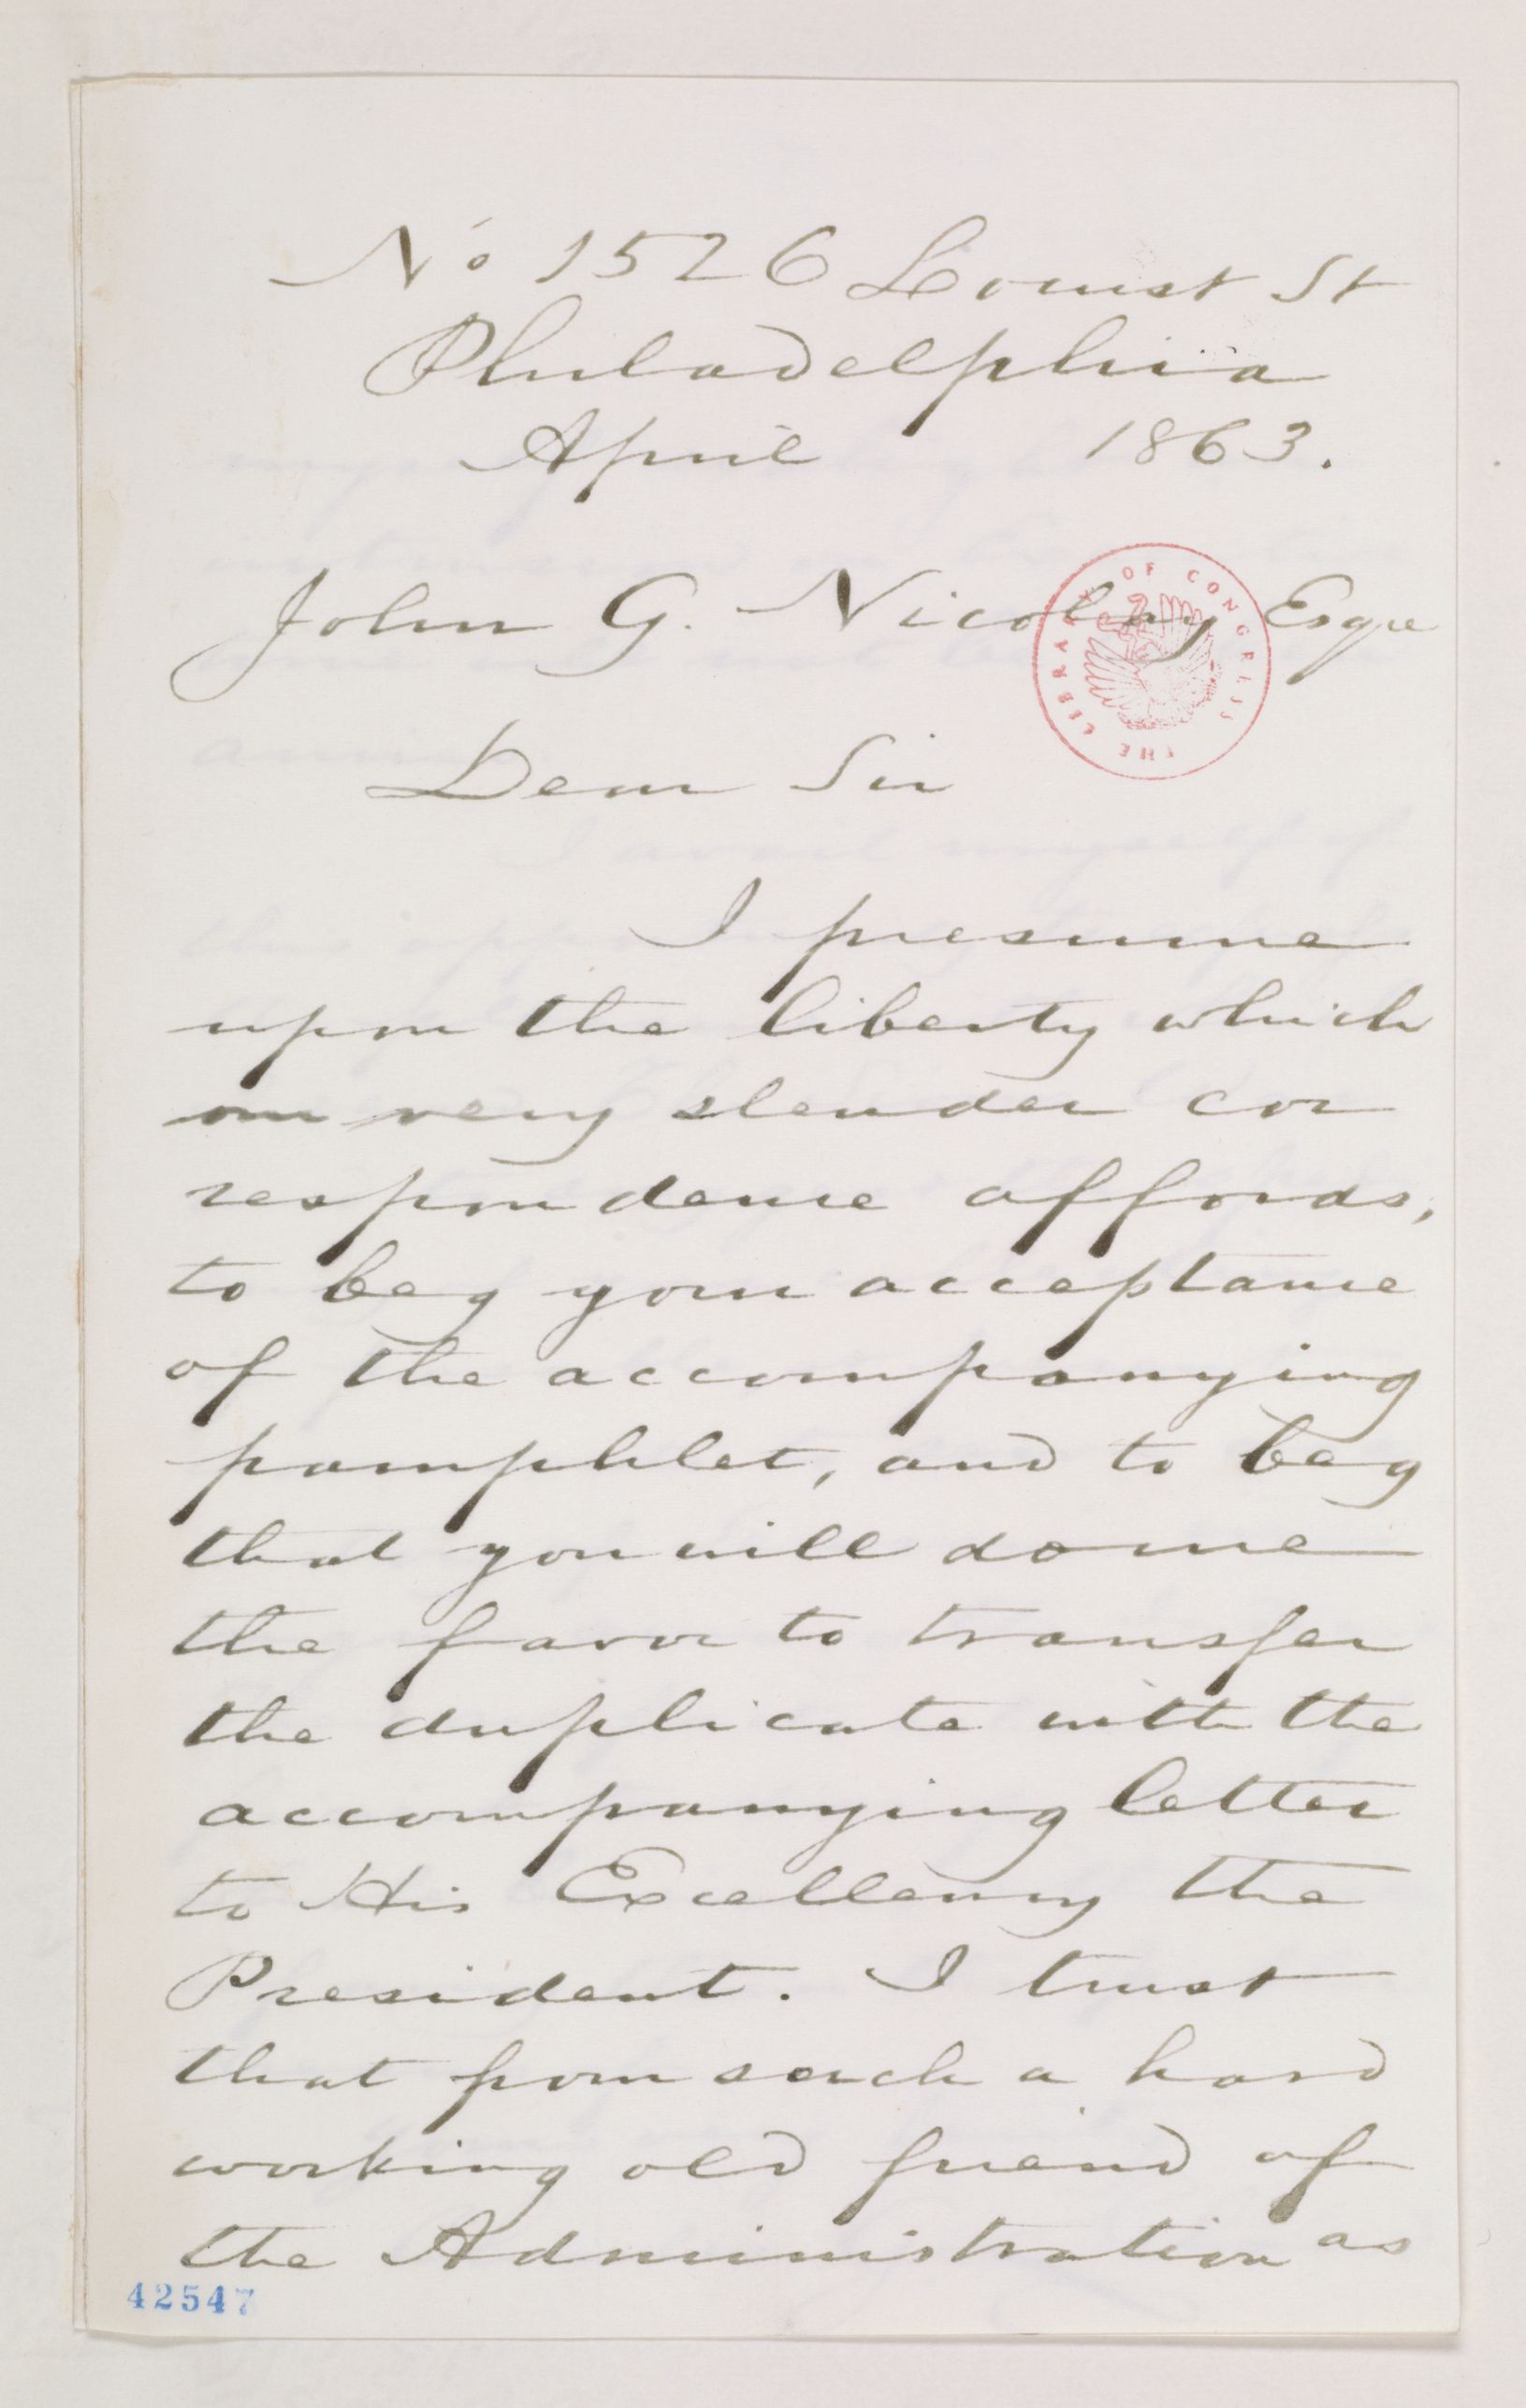 No 1526 Locust St
Philadelphia
April 1863.
John G. Nicolay Esqre
THE LIBRARY OF CONGRESS
Dear Sir
I presume
upon the liberty which
our very slender cor
respondence affords,
to beg your acceptance
of the accompanying
pamphlet, and to beg
that you will do me
the favor to transfer
the duplicate with the
accompanying letter
to His Excellency the
President. I trust
that from such a hard
working old friend of
the Administration as
42547